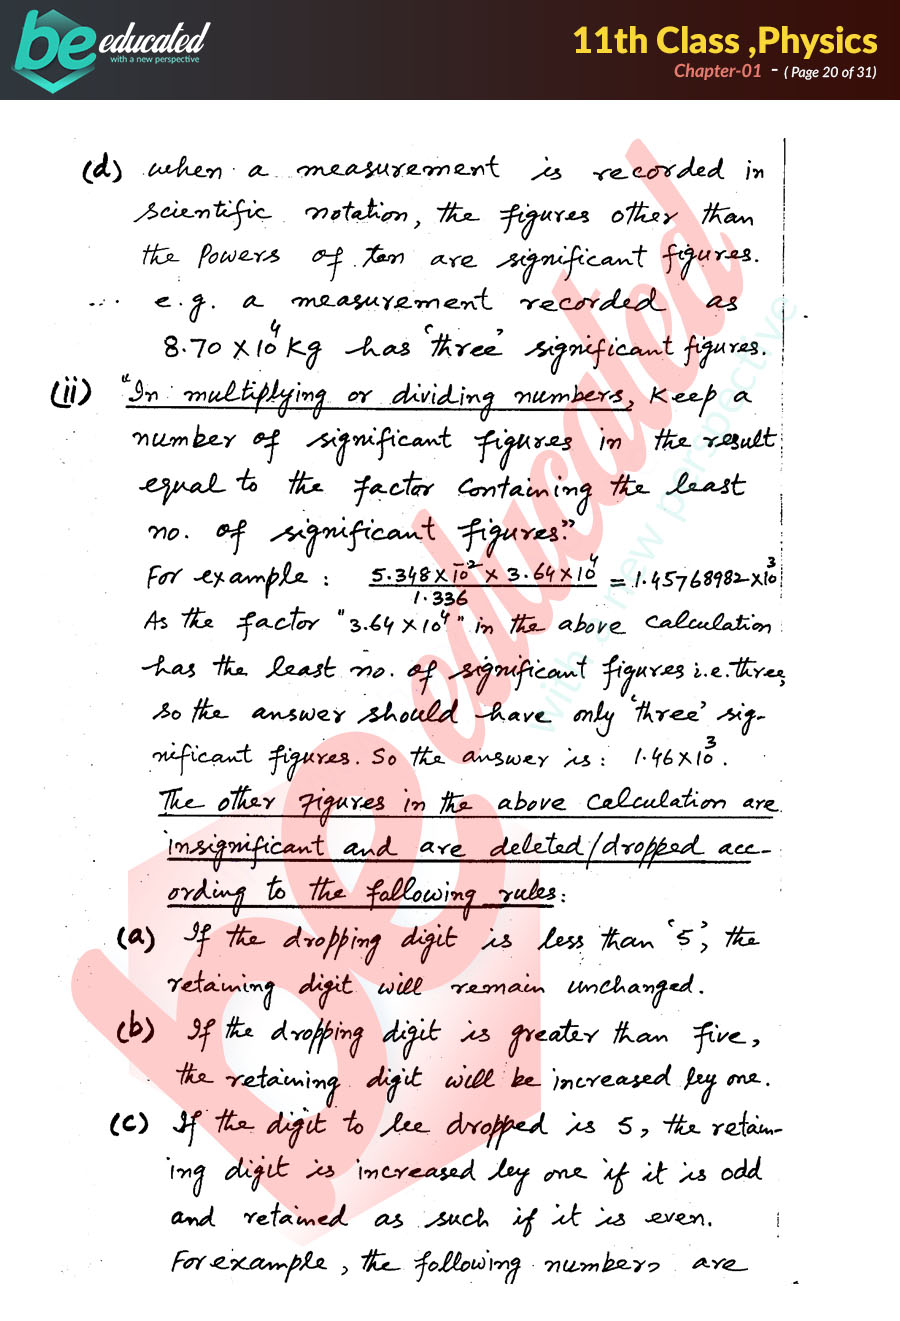 be educated
with a new perspective
11th Class ,Physics
Chapter-01 - ( Page 20 of 31)
(d) when a measurement is recorded in
scientific notation, the figures other than
the Powers of ten are significant figures.
e.g. a measurement recorded as
8.70 X 10⁴ Kg has 'three' significant figures.
(ii) "In multiplying or dividing numbers, Keep a
number of significant figures in the result
equal to the factor containing the least
no. of significant figures."
For example : 5.348 X 10⁻² X 3.64 X 10⁴ / 1.336 = 1.45768982 X 10³
As the factor "3.64 X 10⁴" in the above calculation
has the least no. of significant figures i.e. three,
so the answer should have only 'three' sig-
nificant figures. So the answer is : 1.46 X 10³.
The other Figures in the above calculation are
insignificant and are deleted/dropped acc-
ording to the following rules:
(a) If the dropping digit is less than '5', the
retaining digit will remain unchanged.
(b) If the dropping digit is greater than five,
the retaining digit will be increased by one.
(c) If the digit to be dropped is 5, the retain-
ing digit is increased by one if it is odd
and retained as such if it is even.
For example, the following numbers are
be educated
with a new perspective